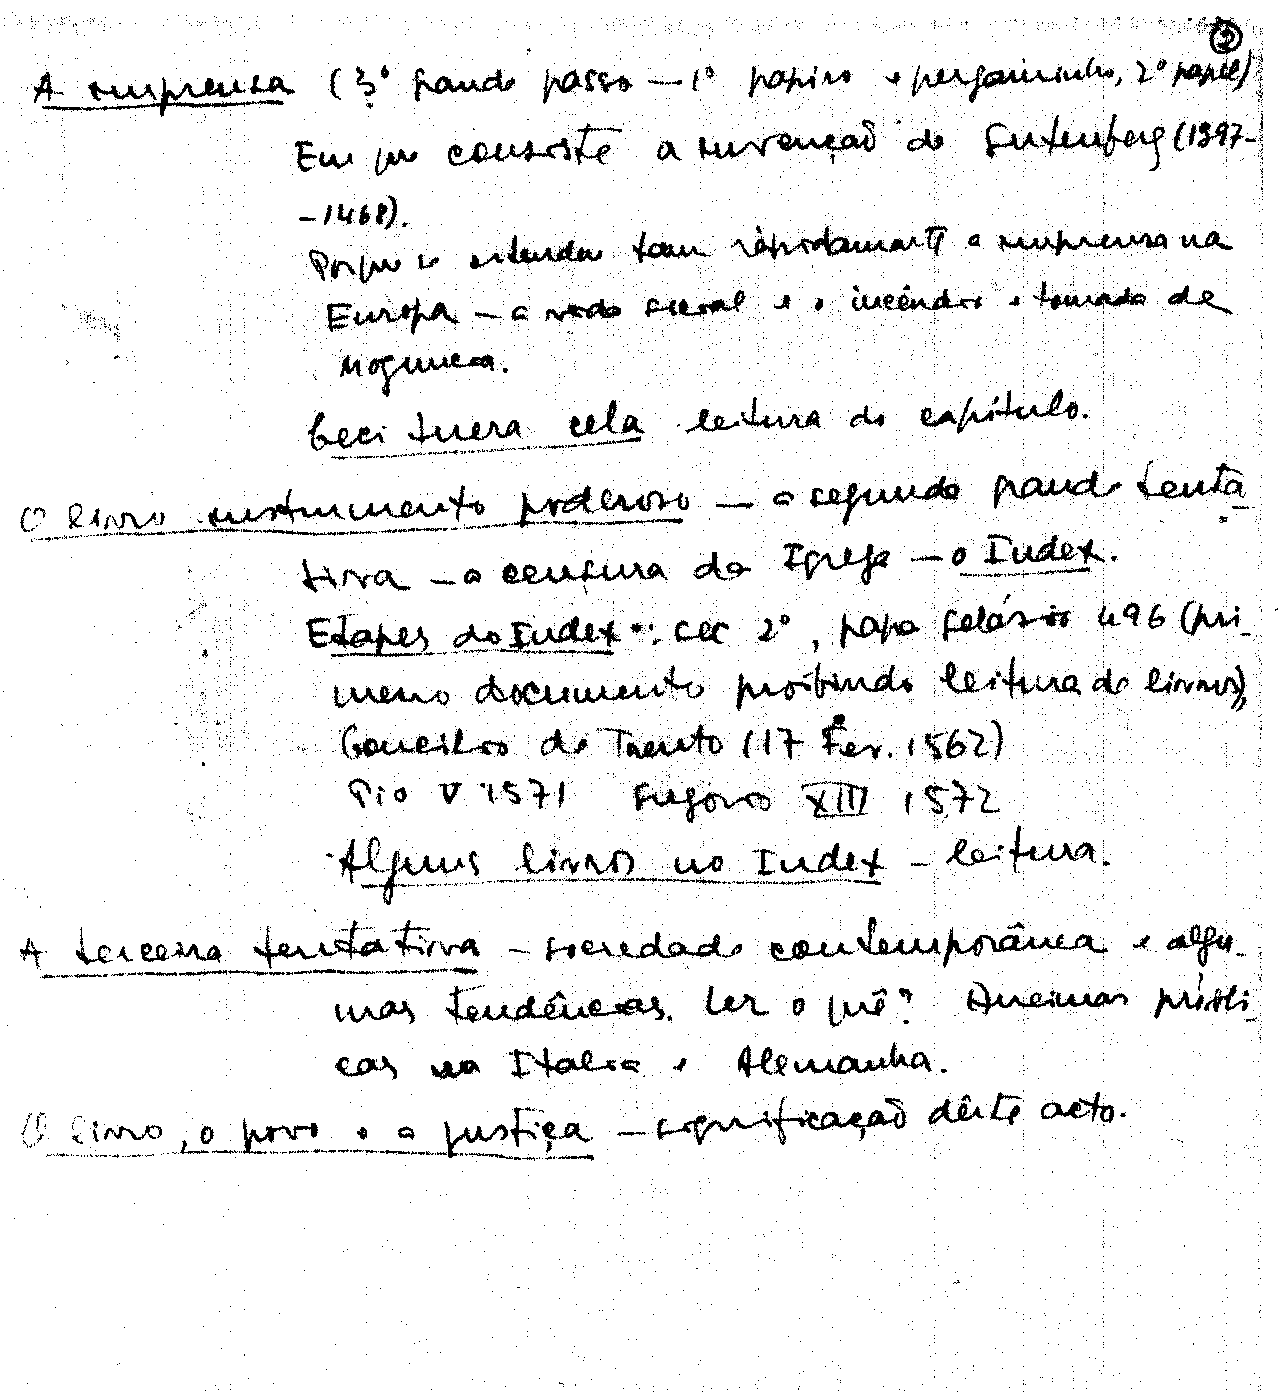 2
A imprensa (3º grande passo — 1º papiro e pergaminho, 2º papel)
Em que consiste a invenção de Gutenberg (1397-
-1468).
Porque se estendeu tam rápidamente a imprensa na
Europa — a rêde social e o incêndio e tomada de
Moguncia.
Ceci tuera cela leitura do capítulo.
O livro instrumento poderoso — a segunda grande tenta-
tiva — a censura da Igreja — o Index.
Etapes do Index: sec 2º, papa Gelásio 496 (pri-
meiro documento proibindo leitura de livros),
Concílio de Trento (17 Fev. 1562)
Pio V 1571 Gregorio XIII 1572
Alguns livros no Index — leitura.
A terceira tentativa — sociedade contemporânea e algu-
mas tendências. Ler o quê?
cas na Italia e Alemanha.
O livro, o povo e a justiça — significação dêste acto.